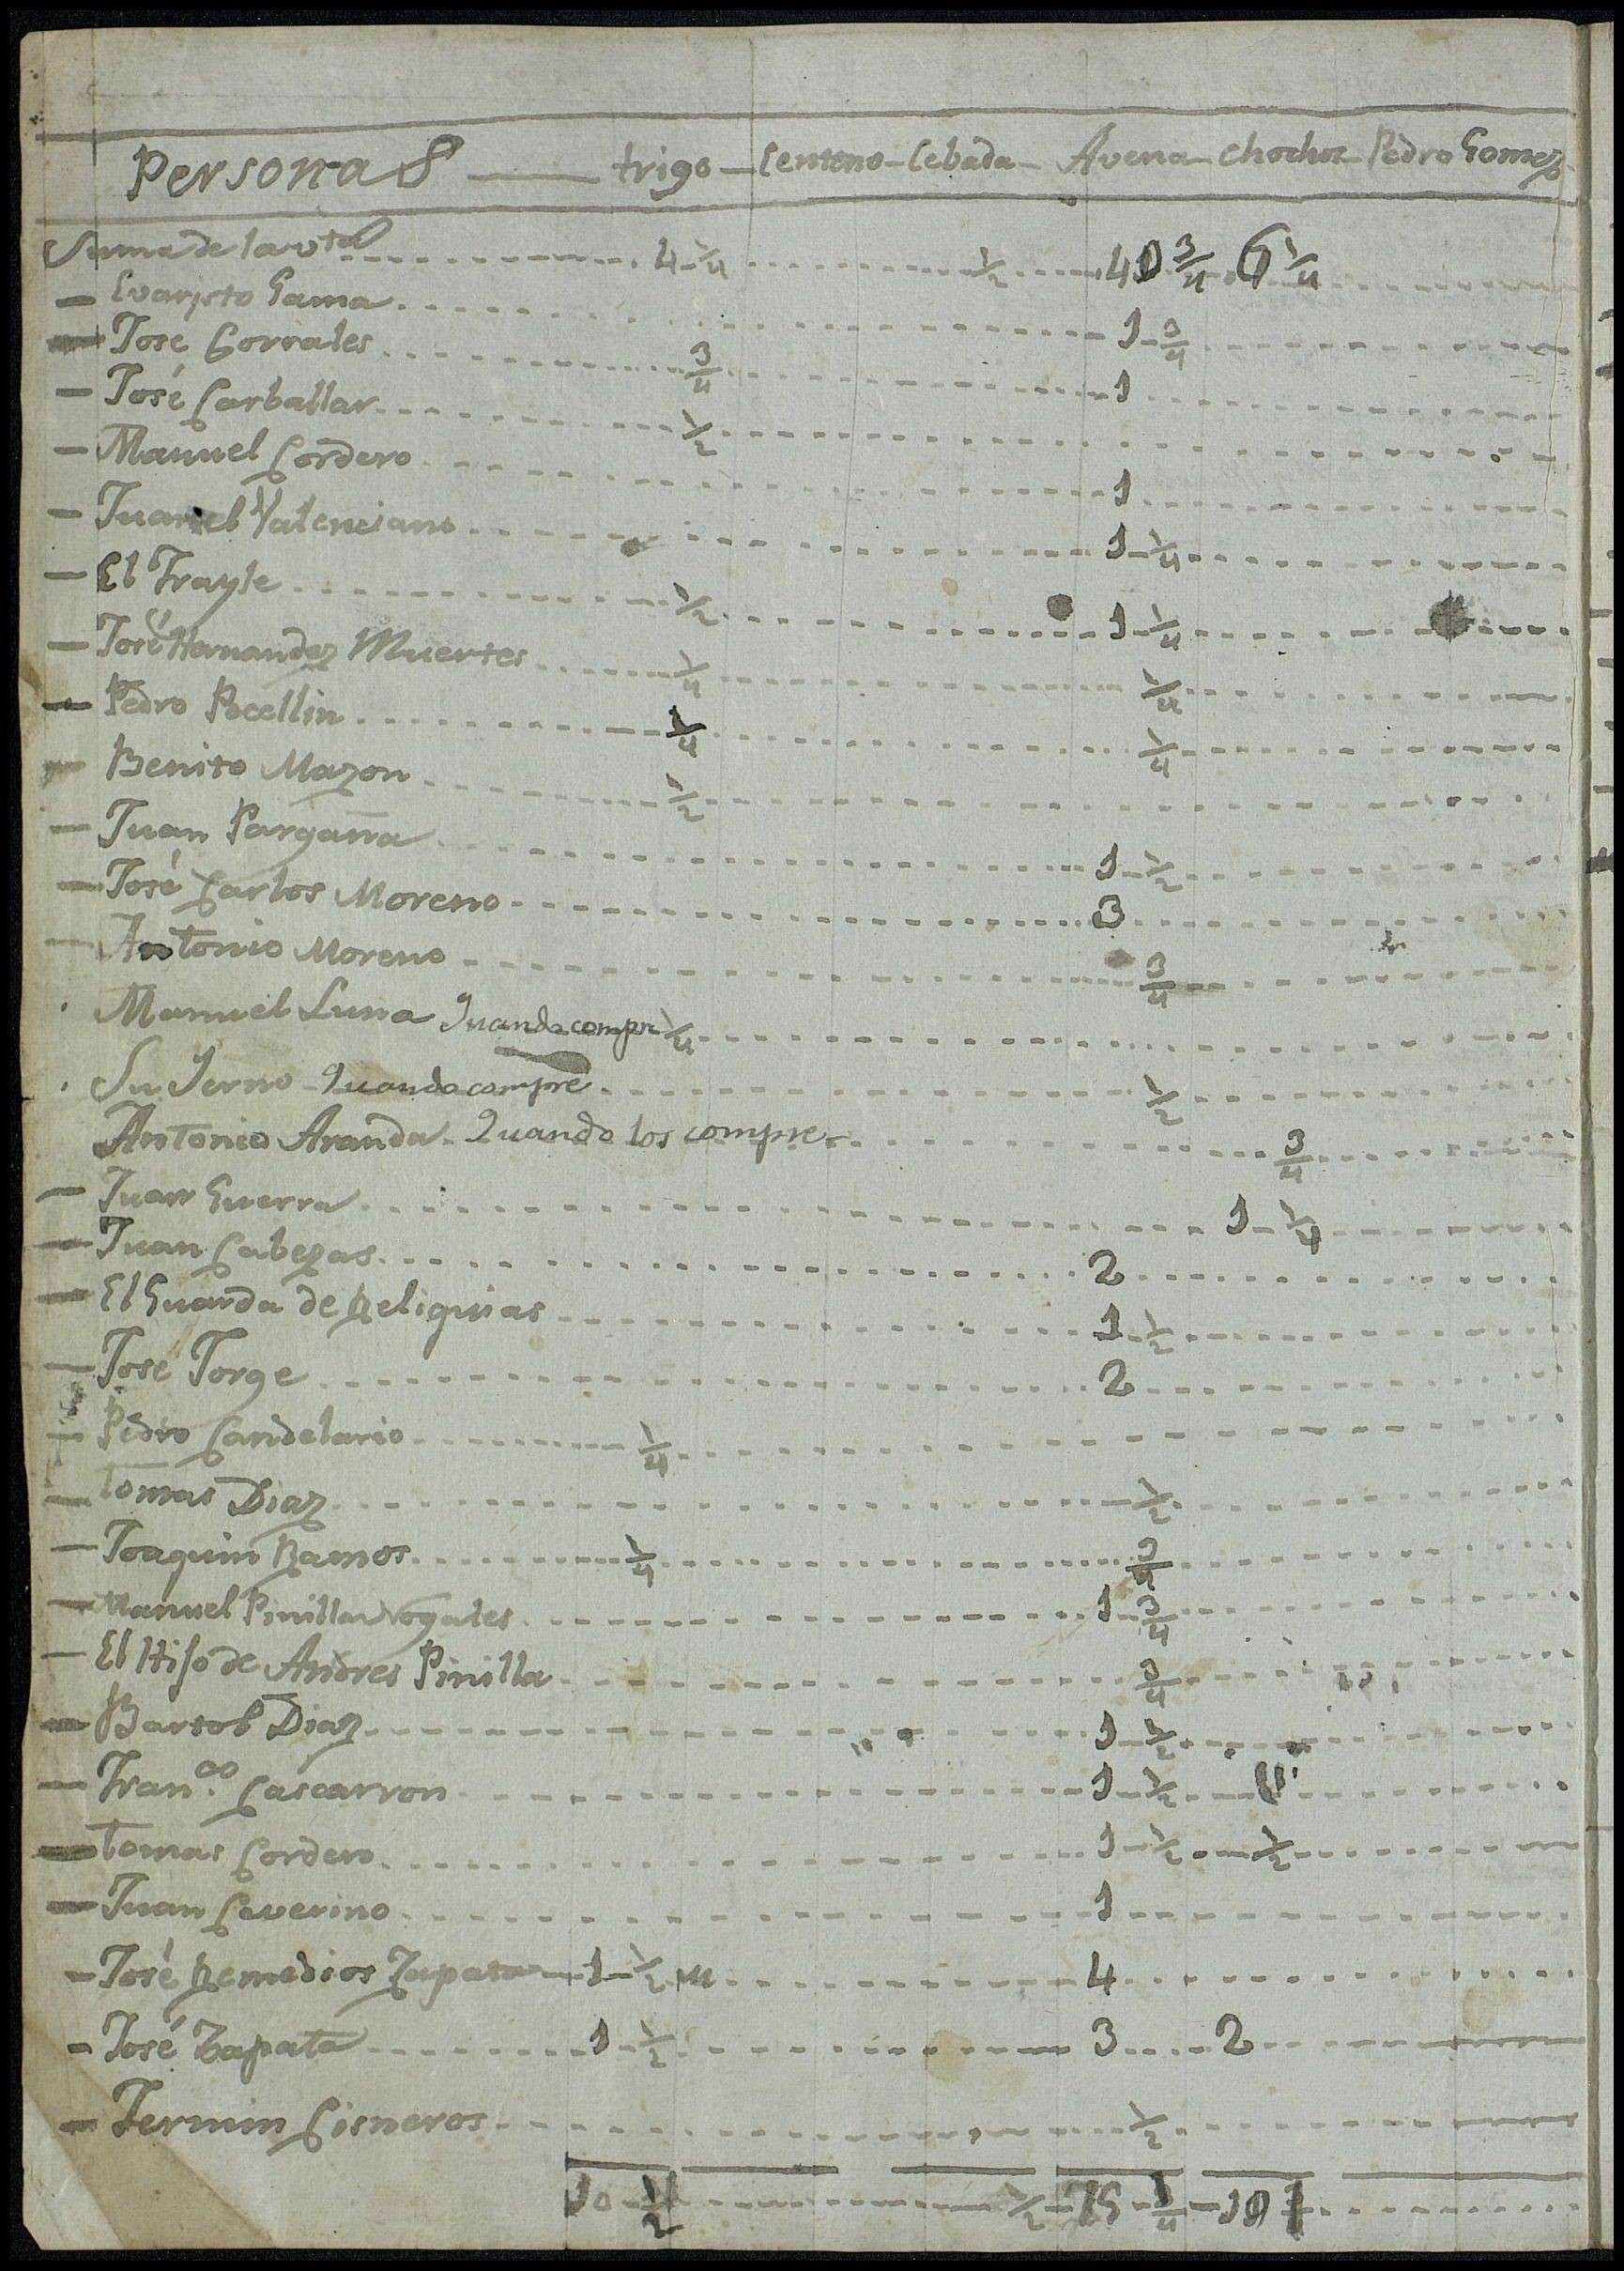 Personas — trigo — Centeno — Cebada — Avena — chochos — Pedro Gomez
Suma de la vta 4 1/4 1/2 40 3/4 6 1/4
— Evaristo Gama 1 3/4
— José Corrales 3/4 1
— José Carballar 1/2
— Manuel Cordero 1
— Juan el Valenciano 1 1/4
— El Frayle 1/2 1 1/4
— José Hernandez Muertes 1/4 1/4
— Pedro Pocellin 1/4 1/4
— Benito Mazon 1/2
— Juan Pargaña 1 1/2
— José Carlos Moreno 3
— Antonio Moreno 3/4
Manuel Luna Quando compre 1/4
Su Yerno Quando compre 1/2
Antonio Aranda Quando los compre 3/4
— Juan Guerra 1 1/4
— Juan Cabezas 2
— El Guarda de Reliquias 1 1/2
— José Jorge 2
— Pedro Candelario 1/4
— Tomas Diaz 1/2
— Joaquin Ramos 1/4 3/4
— Manuel Pinilla Nogales 1 3/4
— El Hijo de Andres Pinilla 3/4
— Bartol Diaz 1 1/2
— Fran.co Cascarron 1 1/2
— Tomas Cordero 1 1/2 1/2
— Juan Ceverino 1
— José Remedios Zapata 1 1/2 4
— José Zapata 1 1/2 3 2
— Fermin Cisneros 1/2
10 1/2 1/2 75 1/4 10